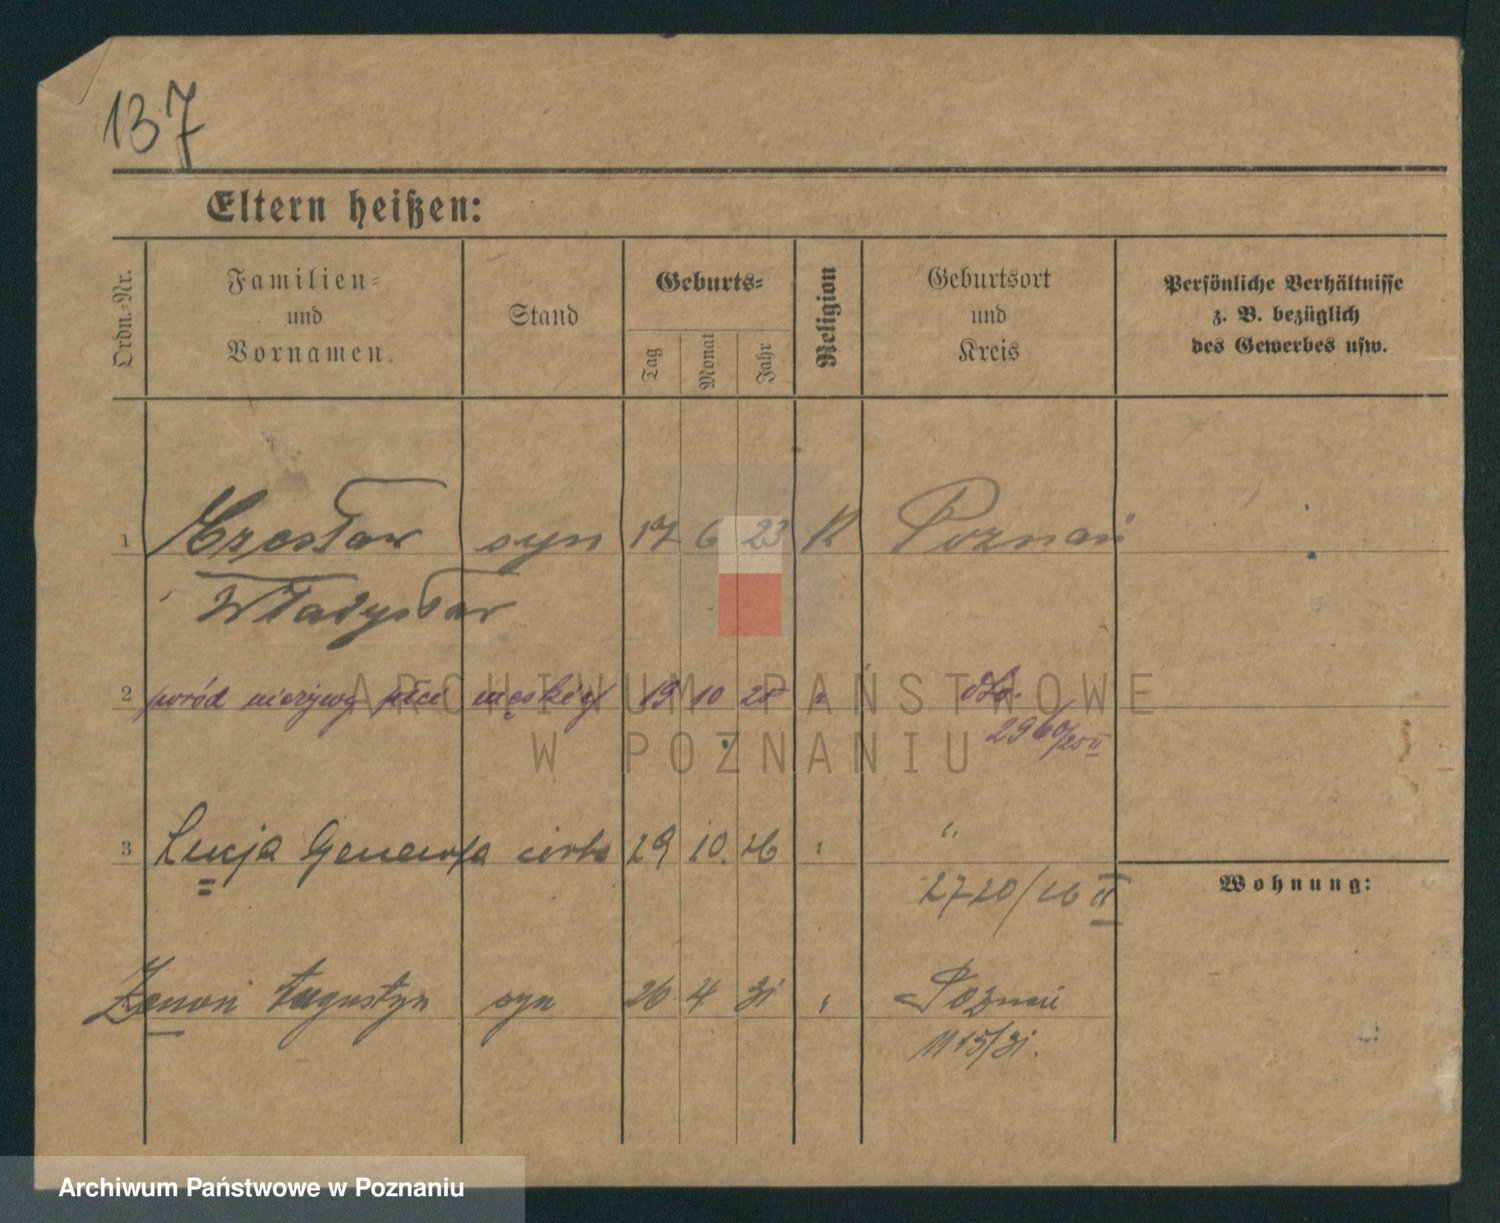 137
Eltern heißen:
Ordn.-Nr.
Familien-
und
Vornamen.
Stand
Geburts-
Tag
Monat
Jahr
Religion
Geburtsort
und
Kreis
Persönliche Verhältnisse
z. B. bezüglich
des Gewerbes usw.
1 syn 17 6 23 K Poznań
Władysław
2 poród nieżywy płci męskiej 19 10 25 " dto.
2960/25 II
3 Łucja Genowefa córka 29 10. 26 " "
2720/26 II
Wohnung:
Zenon Augustyn syn 26 4 31 " Poznań
1115/31.
ARCHIWUM PAŃSTWOWE
W POZNANIU
Archiwum Państwowe w Poznaniu